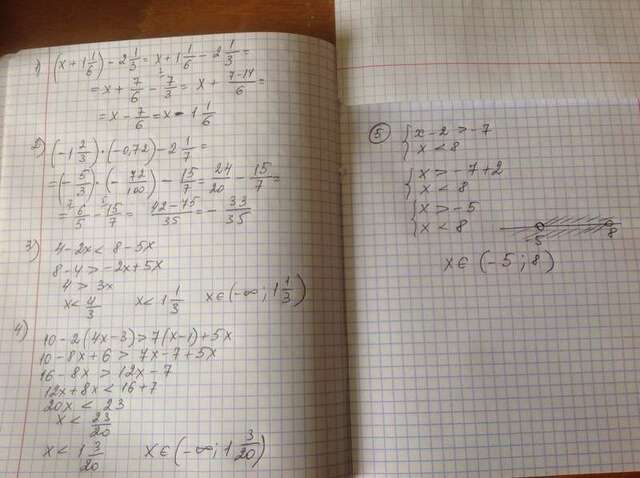 1) (x + 1 1/6) - 2 1/3 = x + 1 1/6 - 2 1/3 =
= x + 7/6 - 7/3 = x + 7-14/6 =
= x - 7/6 = x - 1 1/6
2) (-1 2/3) · (-0,72) - 2 1/7 =
= (-5/3) · (-72/100) - 15/7 = 24/20 - 15/7 =
= 6/5 - 15/7 = 42-75/35 = - 33/35
3) 4 - 2x < 8 - 5x
8 - 4 > -2x + 5x
4 > 3x
x < 4/3 x < 1 1/3 x ∈ (-∞; 1 1/3)
4) 10 - 2(4x - 3) > 7(x - 1) + 5x
10 - 8x + 6 > 7x - 7 + 5x
16 - 8x > 12x - 7
12x + 8x < 16 + 7
20x < 23
x < 23/20
x < 1 3/20 x ∈ (-∞; 1 3/20)
5 { x - 2 > -7
x < 8
{ x > -7 + 2
x < 8
{ x > -5
x < 8
5 8
x ∈ (-5; 8)